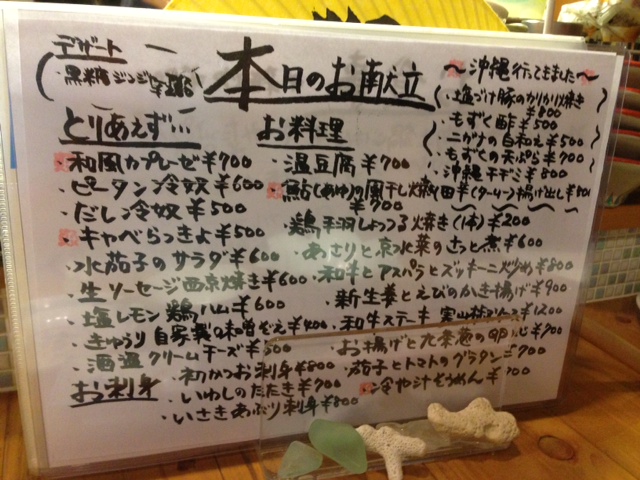 本日のお献立
デザート
・黒糖ジンジャー
〜沖縄行ってきました〜
・塩づけ豚のかりかり焼き
¥800
・もずく酢¥500
・ニガナの白和え¥500
・もずくの天ぷら¥700
・沖縄チヂミ¥800
とりあえず…
・和風カプレーゼ¥700
・ピータン冷奴¥600
・だし冷奴¥500
・キャベらっきょ¥500
・水茄子のサラダ¥600
・生ソーセージ西京焼き¥600
・塩レモン鶏ハム¥600
・きゅうり自家製の味噌ぞえ¥400
・酒盗クリームチーズ¥500
お料理
・温豆腐¥700
・鮎(あゆ)の風干し焼き
¥900
揚げ出し
・鶏手羽しょっつる焼き(1本)¥200
・あさりと京水菜のさっと煮¥600
・和牛とアスパラとズッキーニ炒め¥800
・新生姜とえびのかき揚げ¥900
・和牛ステーキ ¥1200
・お揚げと九条葱の卵とじ¥700
・茄子とトマトのグラタン¥700
・冷や汁そうめん¥700
お刺身
・初かつお刺身¥800
・いわしのたたき¥700
・いさきあぶり刺身¥800